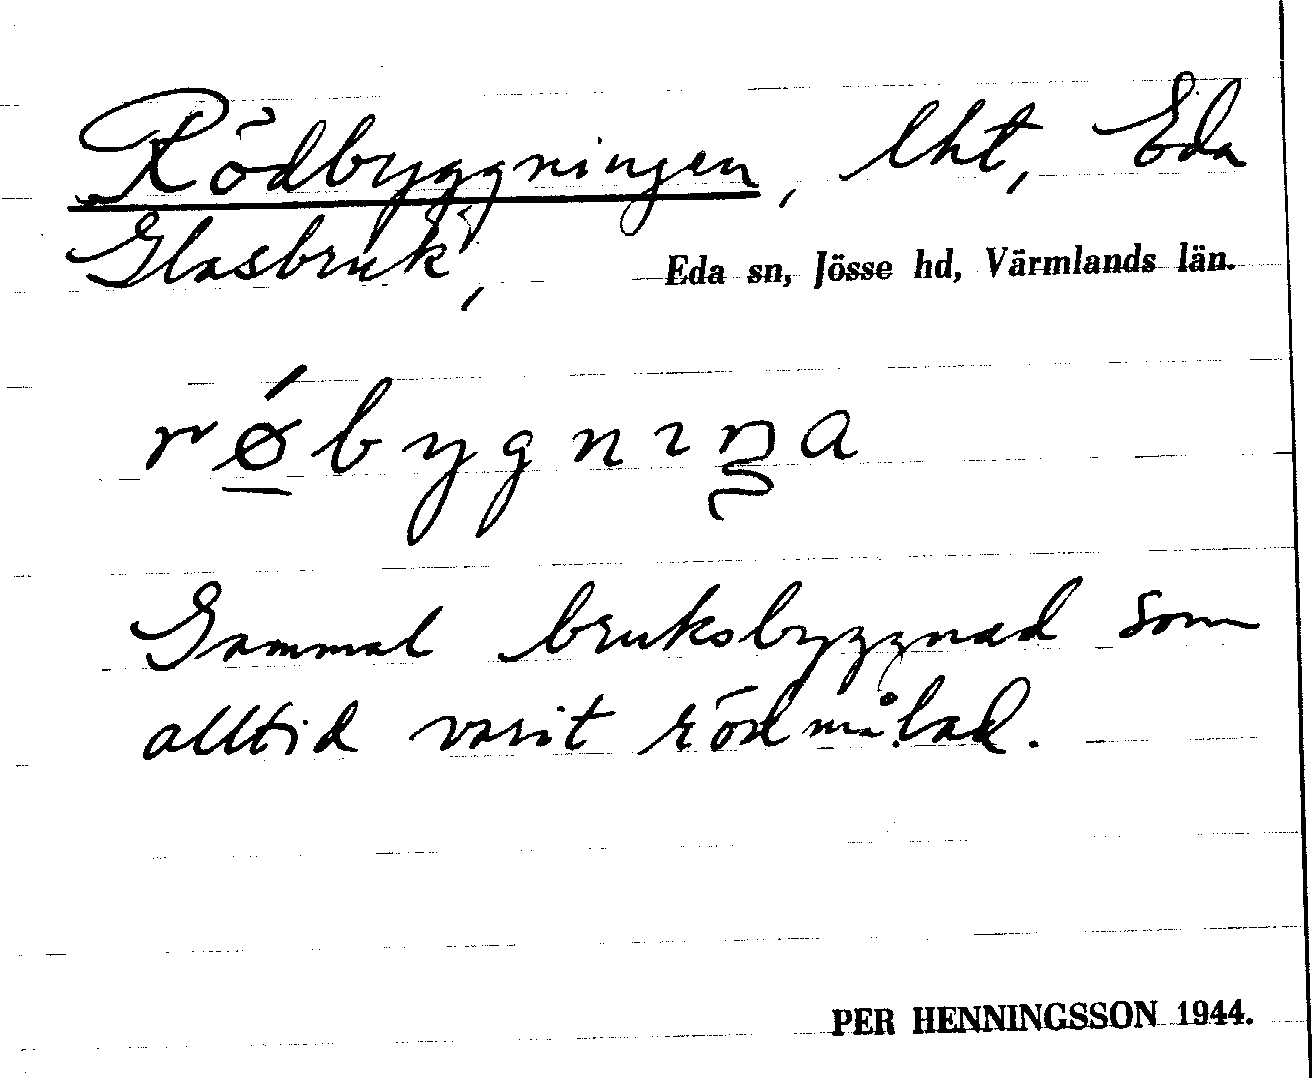 Rödbyggningen, lht, Eda
Glasbruk, Eda sn, Jösse hd, Värmlands län.
rǿ̲bygnıŋa
Gammal bruksbyggnad som
alltid varit rödmålad.
PER HENNINGSSON 1944.